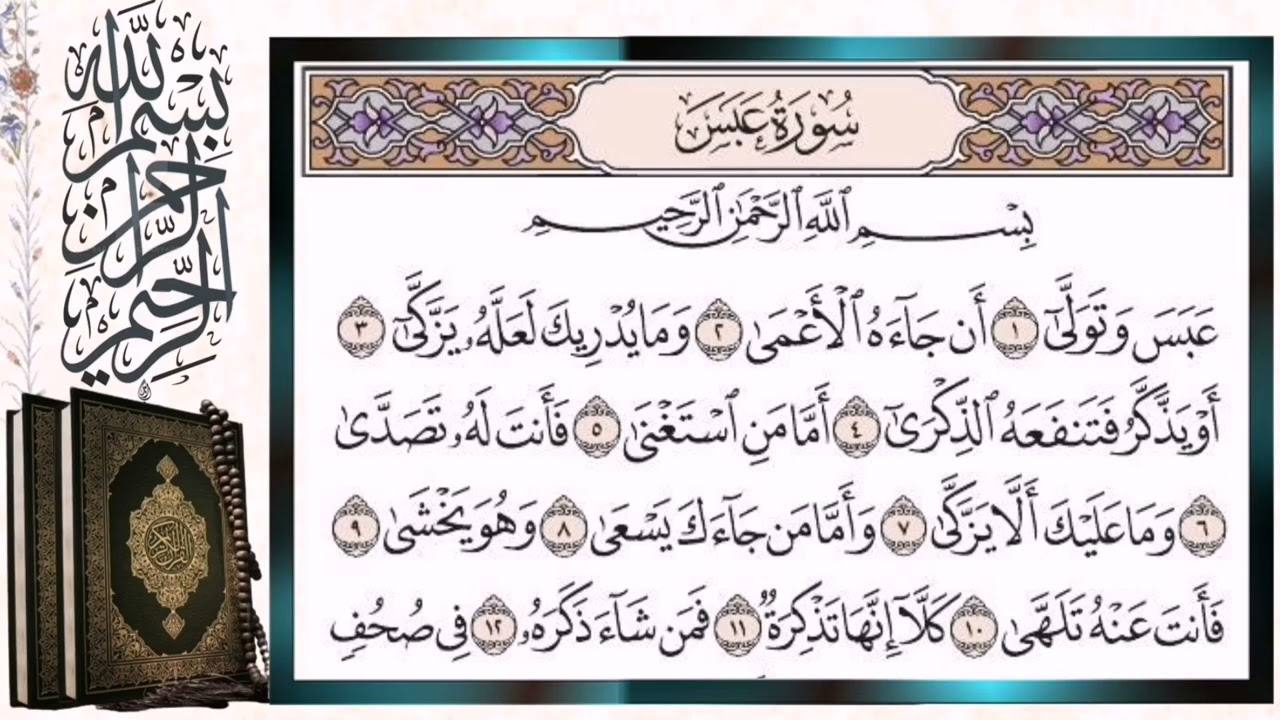 سُورَةُ عَبَسَ
بِسْمِ ٱللَّهِ ٱلرَّحْمَٰنِ ٱلرَّحِيمِ
عَبَسَ وَتَوَلَّىٰٓ ١ أَن جَآءَهُ ٱلْأَعْمَىٰ ٢ وَمَا يُدْرِيكَ لَعَلَّهُۥ يَزَّكَّىٰٓ ٣
أَوْ يَذَّكَّرُ فَتَنفَعَهُ ٱلذِّكْرَىٰٓ ٤ أَمَّا مَنِ ٱسْتَغْنَىٰ ٥ فَأَنتَ لَهُۥ تَصَدَّىٰ
٦ وَمَا عَلَيْكَ أَلَّا يَزَّكَّىٰ ٧ وَأَمَّا مَن جَآءَكَ يَسْعَىٰ ٨ وَهُوَ يَخْشَىٰ ٩
فَأَنتَ عَنْهُ تَلَهَّىٰ ١٠ كَلَّآ إِنَّهَا تَذْكِرَةٌ ١١ فَمَن شَآءَ ذَكَرَهُۥ ١٢ فِى صُحُفٍ
بسم الله
الرحمن
الرحيم
القرآن الكريم